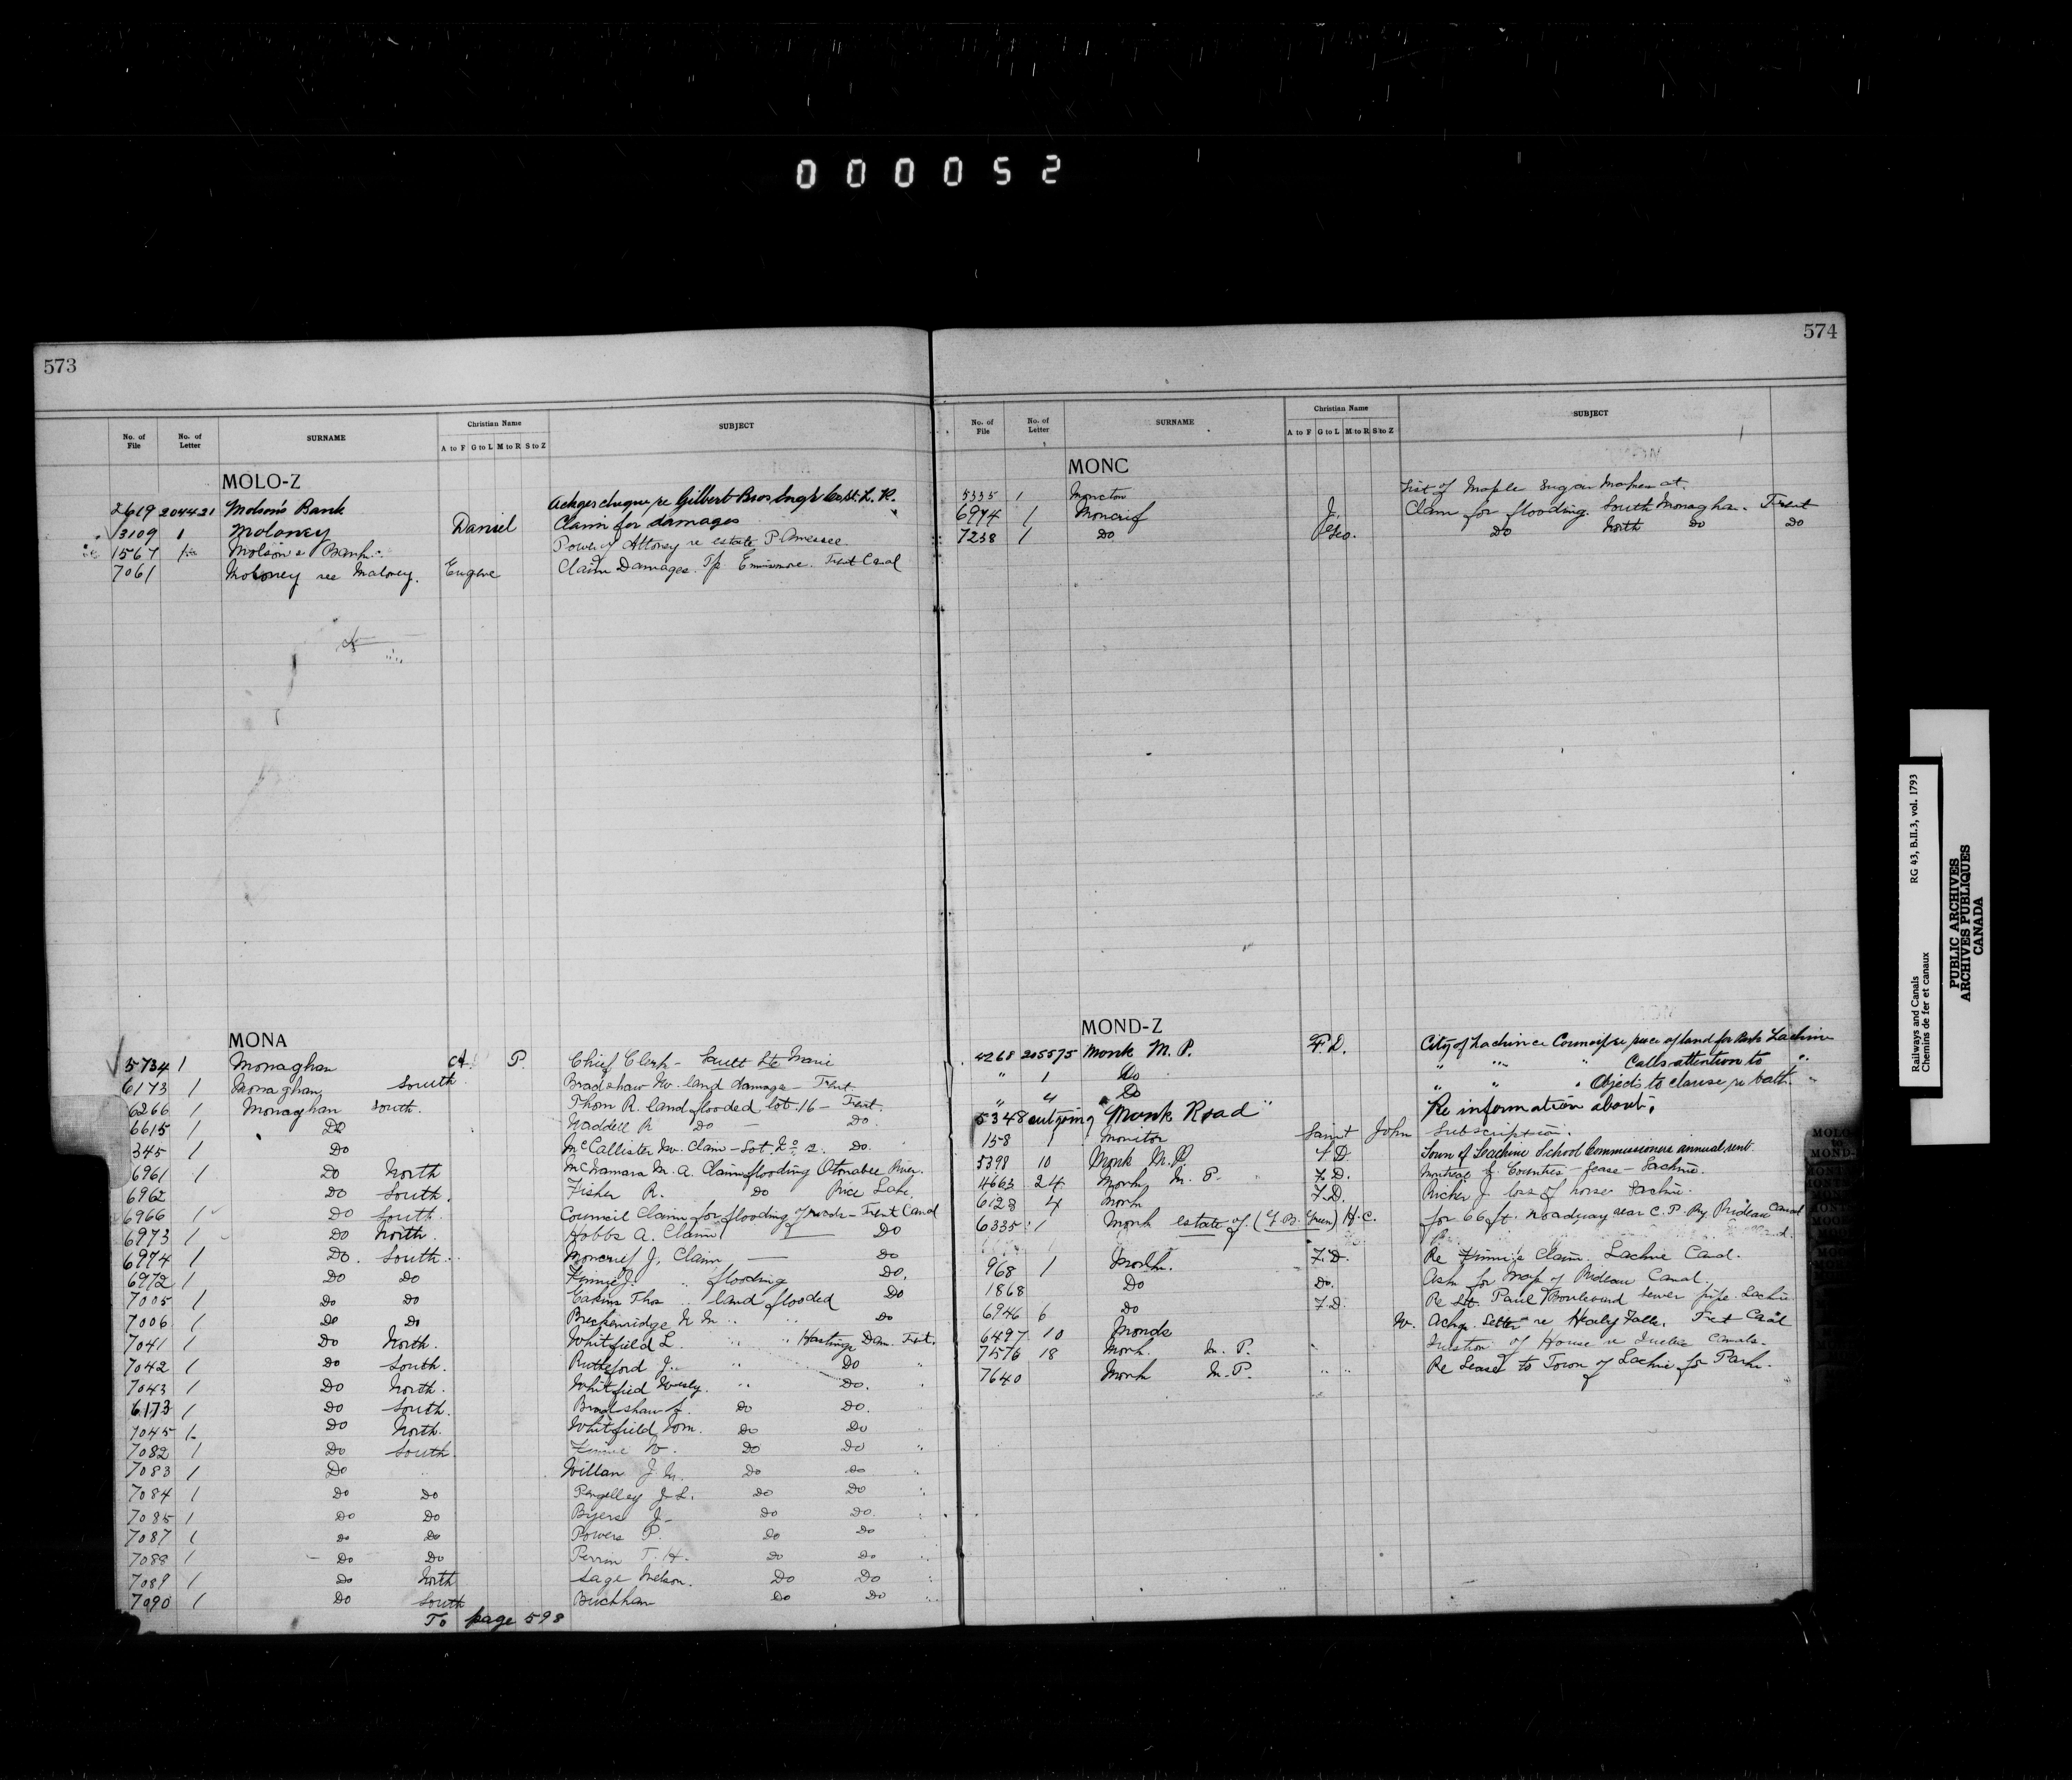 000052
573
No. of File No. of Letter SURNAME Christian Name A to F G to L M to R S to Z SUBJECT
MOLO-Z
2619 204421 Molson's Bank Ackges cheque re Gilbert Bros Eng'r
3109 1 Moloney Daniel Claim for damages
1567 Molson's Bank Power of Attorney re estate P
7061 Moloney see Maloney. Eugene Claim Damages. Tp. Ennismore. Trent Canal
MONA
5734 1 Monaghan P. Chief Clerk - Sault Ste Marie
6173 1 Monaghan South Bradshaw W. land damage - Trent
6266 1 Monaghan South. Thom R. land flooded lot 16 - Trent.
6615 1 Do Waddell R Do - Do.
345 1 Do McCallister W. Claim - Lot No 2. Do.
6961 1 Do North McNamara M. A. Claim flooding Otonabee River.
6962 Do South. Fisher R. Do Rice Lake.
6966 1 Do South. Council Claim for flooding of roads - Trent Canal
6973 1 Do North. Hobbs A. Claim Do
6974 1 Do. South. Moncrief J. Claim — Do
6972 1 Do Do Finnie J. " flooding Do.
7005 1 Do Do Eakins Thos " land flooded Do
7006 1 Do Do Breckenridge " " Do
7041 1 Do North. Whitfield L. " " Hastings Dam. Trent.
7042 1 Do South. Rutherford J. " Do "
7043 1 Do North. Whitfield Wesly. " Do.
6173 1 Do South. Bradshaw Do Do.
7045 1 Do North. Whitfield Wm. Do Do
7082 1 Do South. Finnie W. Do Do "
7083 1 Do Willan J. Do Do
7084 1 Do Do Pengelley J. L. Do Do
7085 1 Do Do Byers J. Do Do.
7087 1 Do Do Powers P. Do Do
7088 1 Do Do Perrin T. H. Do Do
7089 1 Do North Sage Nelson. Do Do
7090 1 Do South Buckham Do Do
To page 598
574
No. of File No. of Letter SURNAME Christian Name A to F G to L M to R S to Z SUBJECT
MONC
5335 1 Moncton List of Maple Sugar Makers at.
6974 1 Moncrief J. Claim for flooding. South Monaghan. Trent
7238 1 Do Geo. Do North Do Do
MOND-Z
4268 205575 Monk M. P. F. D. City of Lachine Council re piece of land for Park Lachine
" 1 Do " " " Calls attention to "
" 4 Do " " " Objects to clause re bath. "
5348 outgoing "Monk Road" Re information about.
158 1 Monitor Saint John Subscription.
5398 10 Monk M.P. F. D. Town of Lachine School Commissioners annual rent.
4663 24 Monk M. P. F. D. Montreal & Counties - Lease - Lachine.
6128 4 Monk F.D. Richer J. loss of horse Lachine.
6335 1 Monk estate of H. C. for 66 ft. roadway near C. P. Ry Rideau Canal
968 1 Monk. F. D. Re Finnie's Claim. Lachine Canal.
1868 Do Do. Ask for map of Rideau Canal.
6946 6 Do F. D. Re St. Paul Boulevard sewer pipe. Lachine
6497 10 Monds W. Ackge. Letter re Healy Falls. Trent Canal
7576 18 Monk. M. P. Question of House re Quebec Canals.
7640 Monk M.P. " " Re Lease to Town of Lachine for Park.
MOLO
to
MOND-
Railways and Canals RG 43, B.II.3, vol. 1793
Chemins de fer et canaux
PUBLIC ARCHIVES
ARCHIVES PUBLIQUES
CANADA